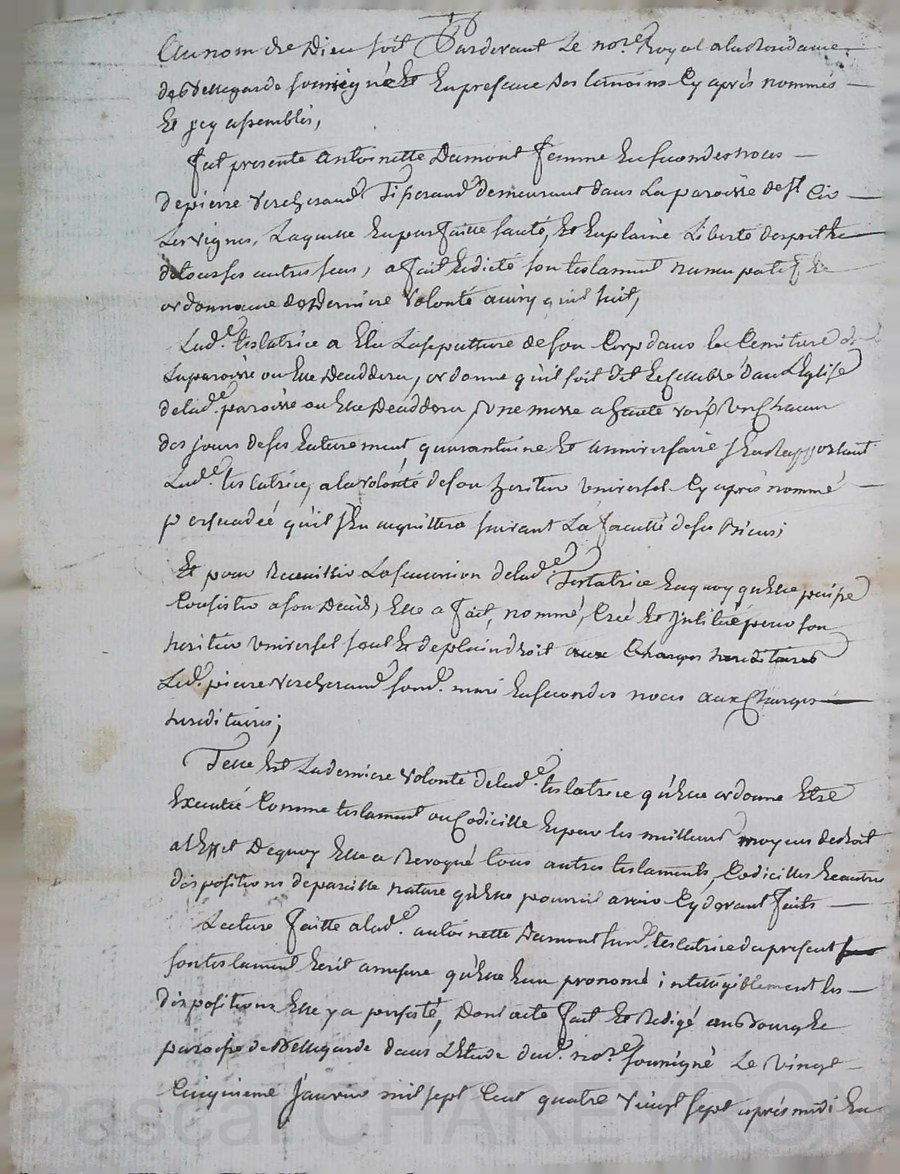 Au nom de Dieu soit Pardevant Le no.re Royal a la Residance
de Bellegarde soussigné Et En presence des temoins Cy aprés nommés
Et icy assemblés,
fut presente antoinette Damont femme En secondes noces
de pierre Vercherand Tisserand demeurant dans La paroisse de st Cir
Les vignes, Laquelle En parfaitte santé, Et En plaine Liberté desprit Et
de tous ses autres sens, a fait Et dicté son testament nuncupatif Et
ordonnance de Derniere Volonté ainsy quil suit,
Lad.e testatrice a Elu La sepulture de son Corp dans le Cemitiere de
La paroisse ou Elle Deceddera, ordonne qu'il soit dit Et Celebré dans L'Eglise
de lad.e paroisse ou Elle Deceddera, Une messe a haute voix Un Chacun
des jours de ses Enterement quarantaine Et anniversaire s'En Rapportant
Lad.e testatrice, a la volonté de son heritier Universel Cy aprés nommé
persuadeé qu'il s'En aquittera suivant La faculté de ses Biens;
Et pour Recuillir La succession de lad.e Testatrice En quoy qu'Elle puisse
Consister a son Decéd, Elle a fait, nommé, Créé Et Institué pour son
heritier Universel seul Et de plain droit aux Charges hereditaires
Led. pierre Vercherand sond. mari En secondes noces aux Charges
hereditaires;
Telle Est La derniere Volonté de lad.e testatrice qu'Elle ordonne Etre
Executée Comme testament ou Codicille Et pour les meilleurs moyens de droit
a l'Effet Dequoy Elle a Revoqué tous autres testaments, Codicilles Et autres
dispositions de pareille nature qu'Elle pourroit avoir Cy devant faits
Lecture faitte a lad.e antoinette Damont susd. testatrice du present
son testament Ecrit a mesure qu'Elle En a prononcé intelligiblement les
dispositions Elle y a persisté, Dont acte fait Et Redigé au Bourg Et
paroisse de Bellegarde dans L'Etude dud. no.re soussigné Le Vingt
Cinquieme Janvier mil sept Cent quatre Vingt sept aprés midi En
Pascal CHAREYRON